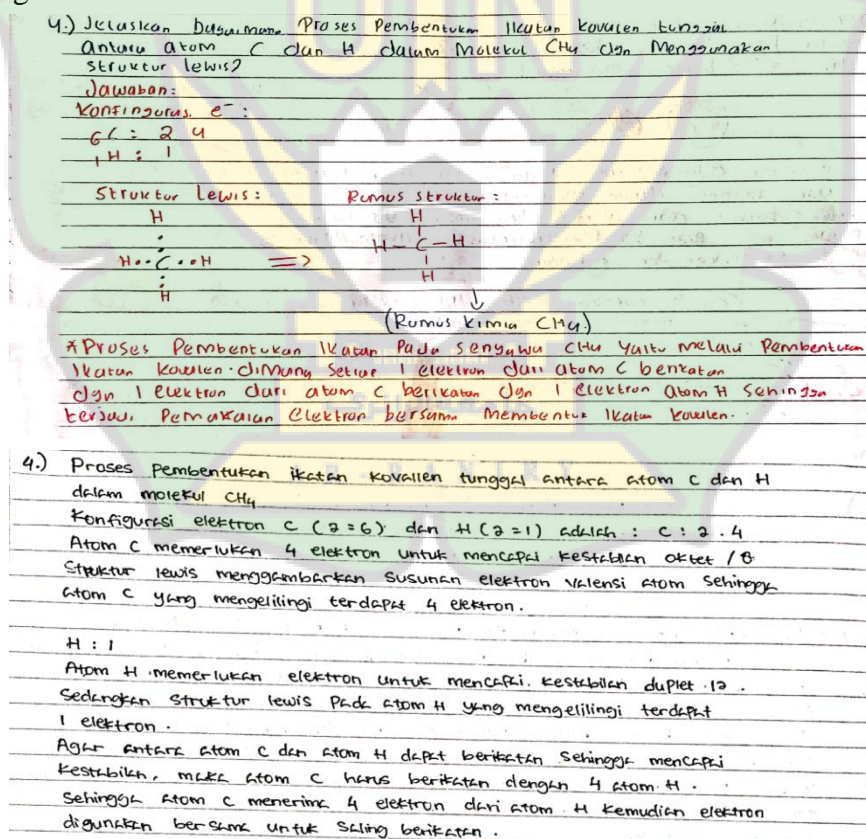 4.) Jelaskan bagaimana Proses Pembentukan Ikatan kovalen tunggal
antara atom C dan H dalam Molekul CH4 dgn Menggunakan
struktur lewis?
Jawaban:
Konfingurasi e⁻ :
6C : 2 4
1H : 1
Struktur Lewis: Rumus struktur :
H H
H •• C •• H => H – C – H
H H
(Rumus kimia CH4)
*Proses Pembentukan Ikatan Pada senyawa CH4 Yaitu melalui Pembentukan
Ikatan Kovalen. dimana setiap 1 elektron dari atom C berikatan
dgn 1 elektron dari atom C berikatan dgn 1 elektron atom H sehingga
terjadi Pemakaian elektron bersama membentuk Ikatan kovalen.
4.) Proses pembentukan ikatan kovallen tunggal antara atom C dan H
dalam molekul CH4
Konfigurasi elektron C (2=6) dan H (2=1) adalah : C : 2 . 4
Atom C memerlukan 4 elektron untuk mencapai kestabilan oktet / 8
Struktur lewis menggambarkan susunan elektron valensi atom sehingga
atom C yang mengelilingi terdapat 4 elektron.
H : 1
Atom H memerlukan elektron untuk mencapai. kestabilan duplet .12 .
Sedangkan struktur lewis pada atom H yang mengelilingi terdapat
1 elektron .
Agar antara atom C dan atom H dapat berikatan sehingga mencapai
kestabilan, maka atom C harus berikatan dengan 4 atom H .
Sehingga atom C menerima 4 elektron dari atom H kemudian elektron
digunakan bersama untuk saling berikatan .